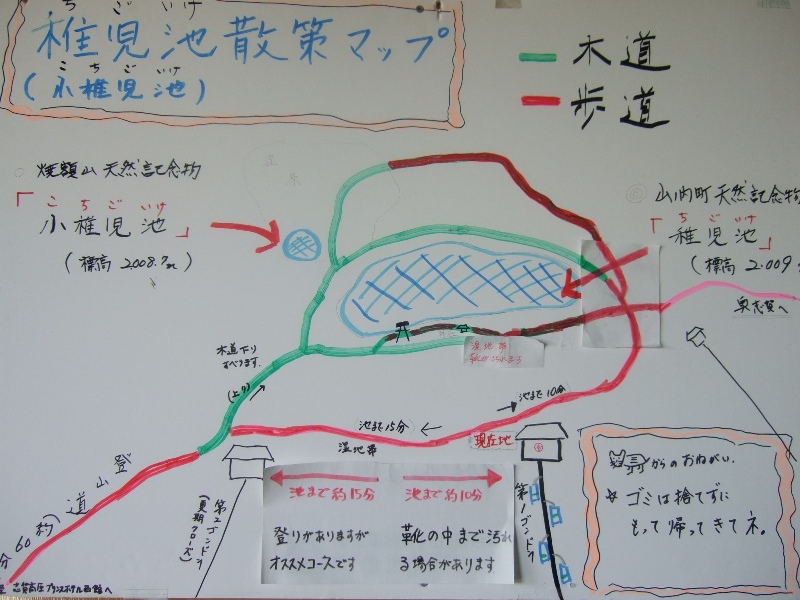 ちごいけ
稚児池散策マップ
こちごいけ
(小稚児池)
木道
歩道
焼額山天然記念物
「こちごいけ」
小稚児池
(標高 2008.7m)
山内町天然記念物
「ちごいけ」
稚児池
(標高 2.009
奥志賀へ
木道下り
すべります。
(上り)
湿地帯
靴が汚れます
池まで10分
池まで15分
湿地帯
現在地
登山道
(約60分
志賀高原プリンスホテル西館へ
第2ゴンドラ
(夏期クローズ)
第1ゴンドラ
池まで約15分
登りがありますが
オススメコースです
池まで約10分
靴の中まで汚れ
る場合があります
からのおねがい.
ゴミは捨てずに
もって帰ってきてネ。